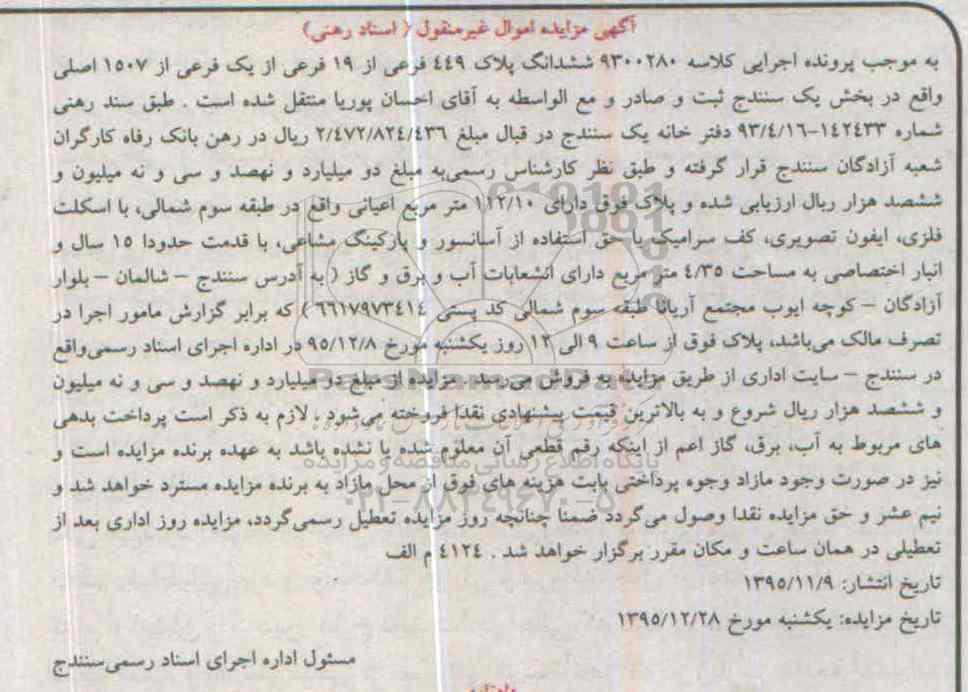 آگهی مزایده اموال غیرمنقول ( اسناد رهنی)
به موجب پرونده اجرایی کلاسه ۹۳۰۰۲۸۰ ششدانگ پلاک ۴۴۹ فرعی از ۱۹ فرعی از یک فرعی از ۱۵۰۷ اصلی
واقع در بخش یک سنندج ثبت و صادر و مع الواسطه به آقای احسان پوریا منتقل شده است . طبق سند رهنی
شماره ۱۴۲۴۳۳-۹۳/۴/۱۶ دفتر خانه یک سنندج در قبال مبلغ ۲/۴۷۲/۸۲۴/۴۳۶ ریال در رهن بانک رفاه کارگران
شعبه آزادگان سنندج قرار گرفته و طبق نظر کارشناس رسمی‌به مبلغ دو میلیارد و نهصد و سی و نه میلیون و
ششصد هزار ریال ارزیابی شده و پلاک فوق دارای ۱۱۲/۱۰ متر مربع اعیانی واقع در طبقه سوم شمالی، با اسکلت
فلزی، ایفون تصویری، کف سرامیک با حق استفاده از آسانسور و پارکینگ مشاعی، با قدمت حدودا ۱۵ سال و
انبار اختصاصی به مساحت ۴/۳۵ متر مربع دارای انشعابات آب و برق و گاز ( به آدرس سنندج – شالمان – بلوار
آزادگان – کوچه ایوب مجتمع آریانا طبقه سوم شمالی کد پستی ۶۶۱۷۹۷۳۴۱۴ ) که برابر گزارش مامور اجرا در
تصرف مالک می‌باشد، پلاک فوق از ساعت ۹ الی ۱۲ روز یکشنبه مورخ ۹۵/۱۲/۸ در اداره اجرای اسناد رسمی‌واقع
در سنندج – سایت اداری از طریق مزایده به فروش می‌رسد. مزایده از مبلغ دو میلیارد و نهصد و سی و نه میلیون
و ششصد هزار ریال شروع و به بالاترین قیمت پیشنهادی نقدا فروخته می‌شود ، لازم به ذکر است پرداخت بدهی
های مربوط به آب، برق، گاز اعم از اینکه رقم قطعی آن معلوم شده یا نشده باشد به عهده برنده مزایده است و
نیز در صورت وجود مازاد وجوه پرداختی بابت هزینه های فوق از محل مازاد به برنده مزایده مسترد خواهد شد و
نیم عشر و حق مزایده نقدا وصول می‌گردد ضمنا چنانچه روز مزایده تعطیل رسمی‌گردد، مزایده روز اداری بعد از
تعطیلی در همان ساعت و مکان مقرر برگزار خواهد شد . ۴۱۲۴ م الف
تاریخ انتشار: ۱۳۹۵/۱۱/۹
تاریخ مزایده: یکشنبه مورخ ۱۳۹۵/۱۲/۲۸
مسئول اداره اجرای اسناد رسمی‌سنندج
ParsNamadData
پایگاه اطلاع رسانی مناقصه و مزایده
۰۲۱-۸۸۳۴۹۶۷۰-۵